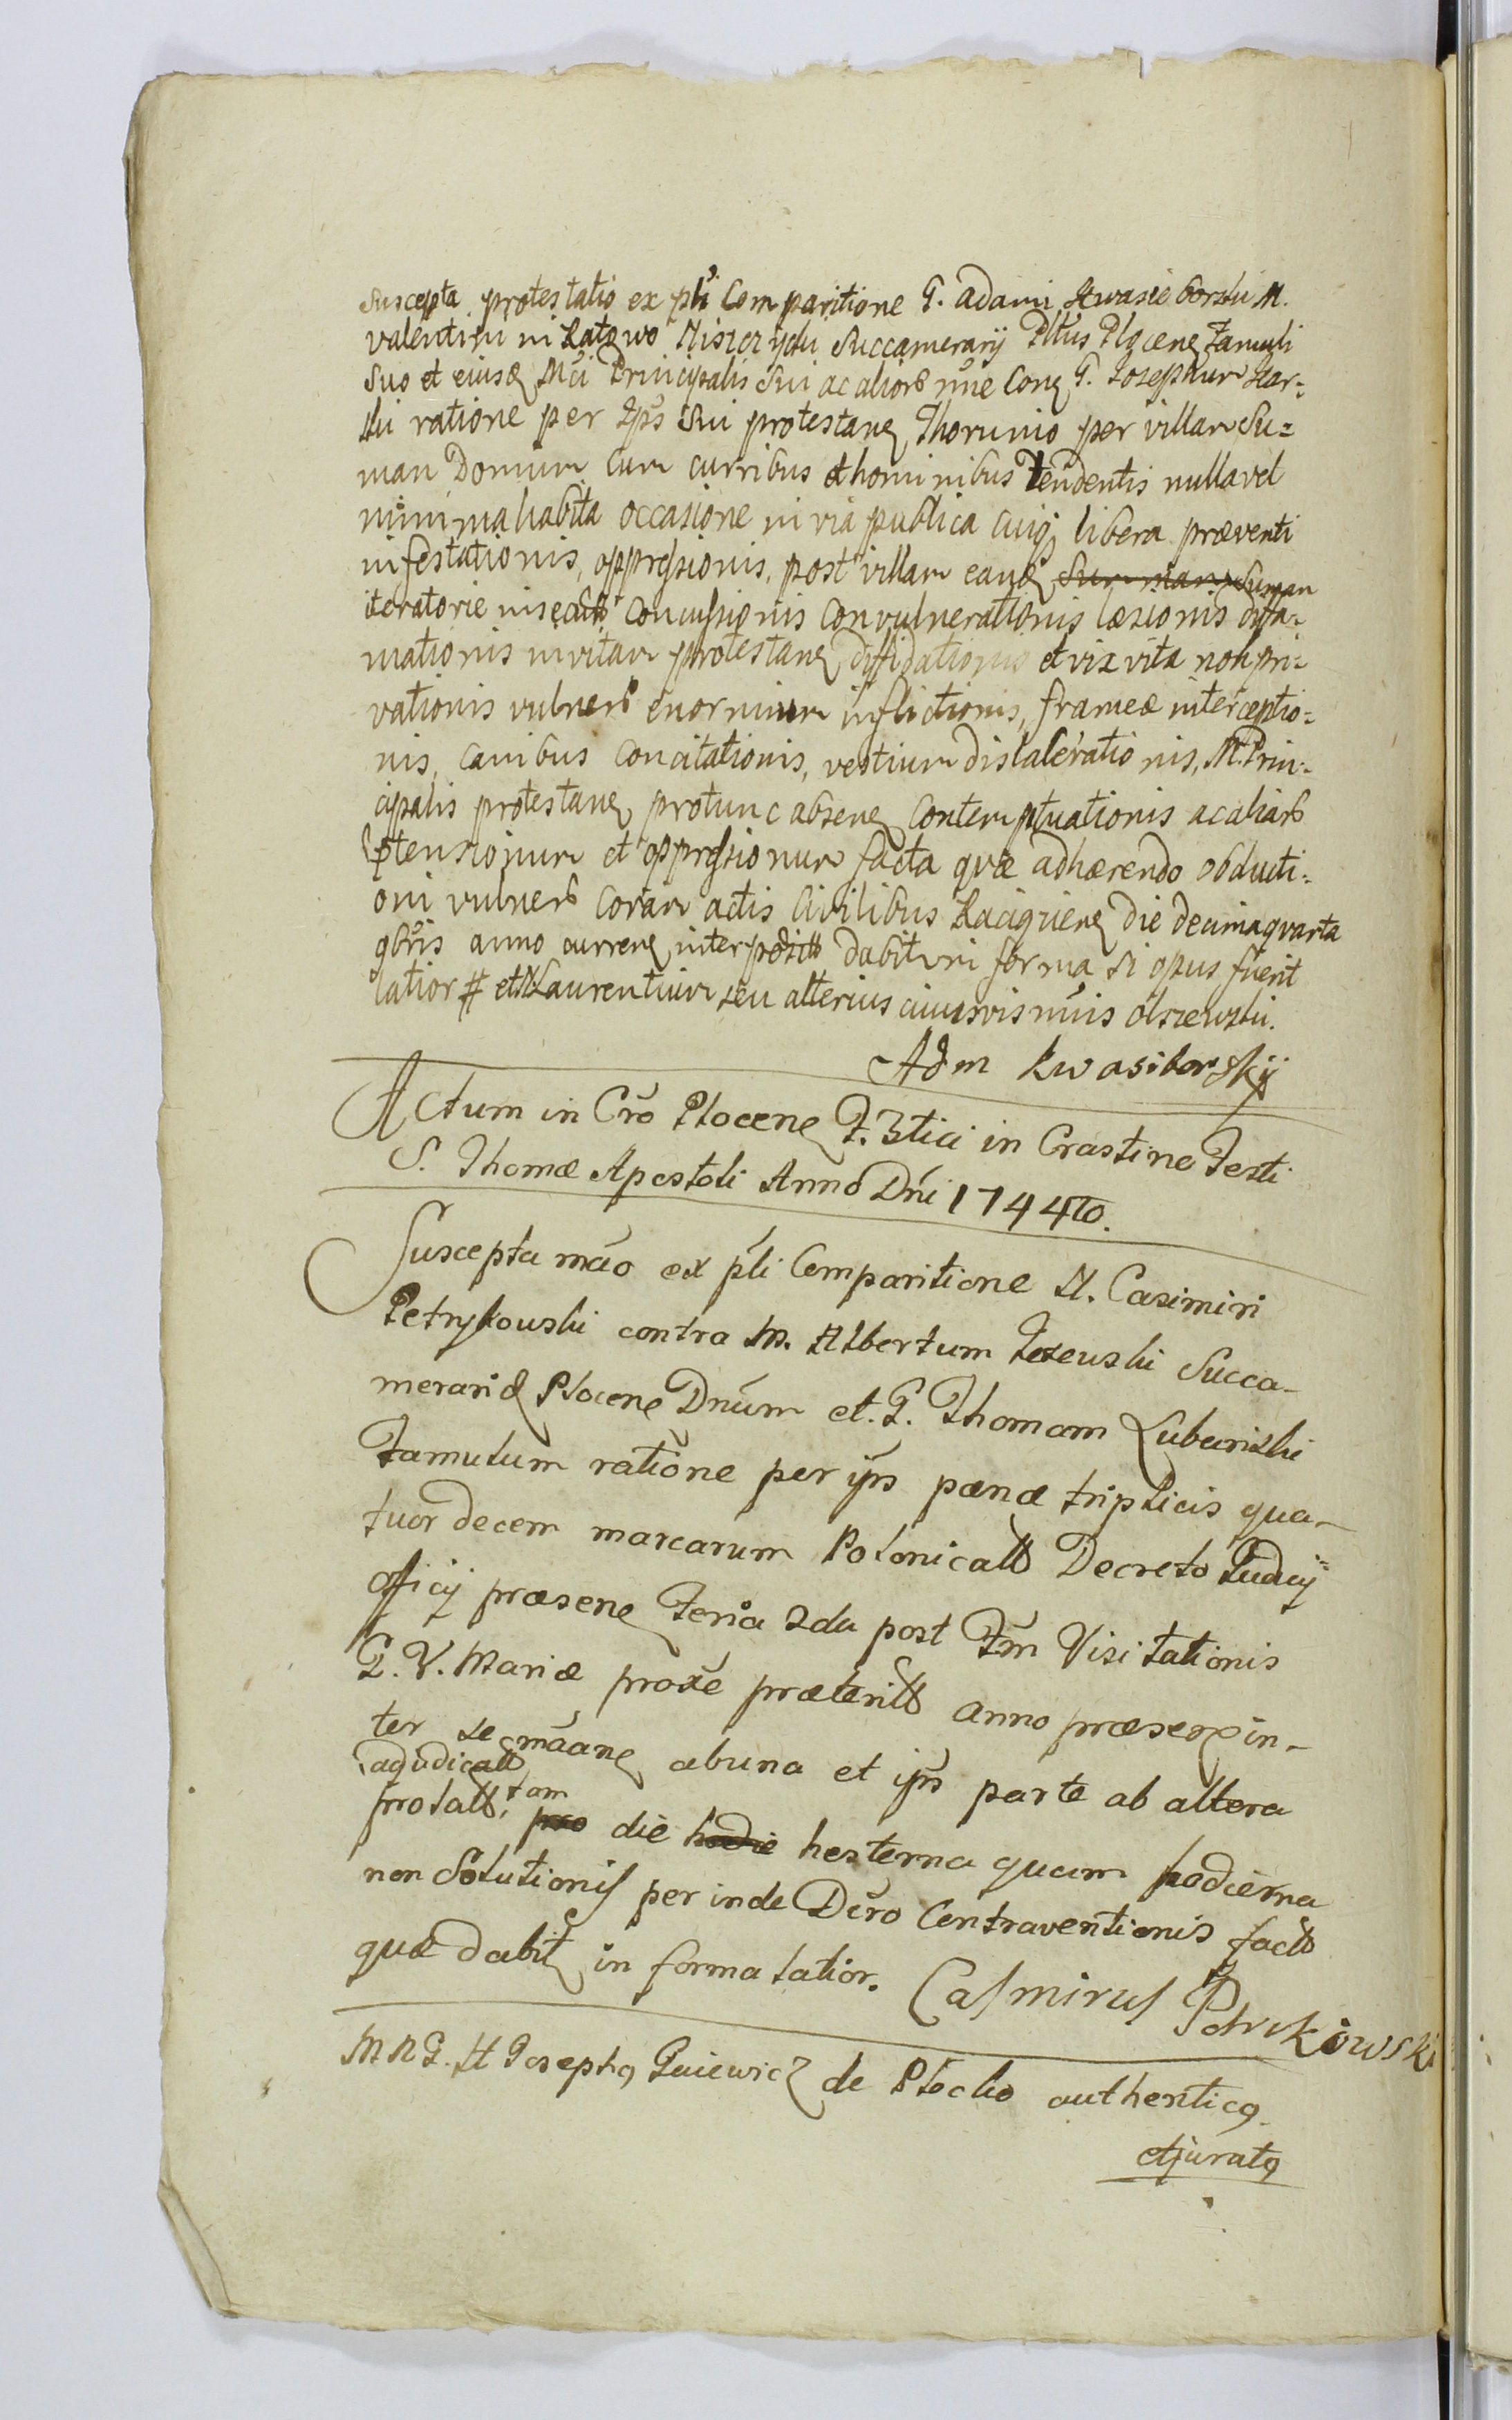 Suscepta protestatio ex pñti Comparitione G. Adami Kwasieborski M.
Valentini in Ratowo Miszczycki Succamerarij Pltus Plocen Famuli
Suo et eiusd Mci Principalis Sui ac aliorb nñe Con G. Josephum Kar=
ski ratione per Ips Sui protestan Thorunio per villam Su=
man Domum Cum curribus et hominibus tendentis nulla vel
minima habita occasione in via publica cuiq libera præventi
infestationis, oppressionis, post villam eand Sum man Suman
iteratorie insecut Concussionis Convulnerationis læsionis diffa=
mationis in vitam protestan diffidationis et vix vita non pri=
vationis vulnerb enormium inflictionis, frameæ interceptio=
nis, Canibus Concitationis, vestium dislaceratio nis, M. Prin=
cipalis protestan protunc absen Contemptuationis ac aliarb
ptensionum et oppressionum facta quæ adhærendo obducti=
oni vulnerb Coram actis Civilibus Raciązien die decima quarta
gbris anno curren interposit dabitur in forma si opus fuerit
latior # et N Laurentium seu alterius cuiusvis nñis Olszewski.
Adm Kwasiborskÿ
Actum in Cro Plocen F. 3tia in Crastino Festi
S. Thomæ Apostoli Anno Dni 1744to.
Suscepta mão ex pñti Comparitione N. Casimiri
Petrykowski contra M. Albertum Jezewski Succa-
merarid Plocen Dnum et. G. Thomam Lubanski
Famulum ratione per ips pænæ triplicis qua-
tuor decem marcarum Polonicall Decreto Judicij
officij præsen Feria 2da post Fm Visitationis
B. V. Mariæ proxe præterit anno præsen in-
ter se mãan ab una et ips parte ab altera
adjudicall
prolatt, tam pro die hodie hesterna quam hodierna
non Solutionis per inde Dcro Contraventionis fact
quæ dabit in forma latior. Casmirus Petrikowski
M N G. H Joseph9 Guiewicz de Plocko authentic9
et jurat9